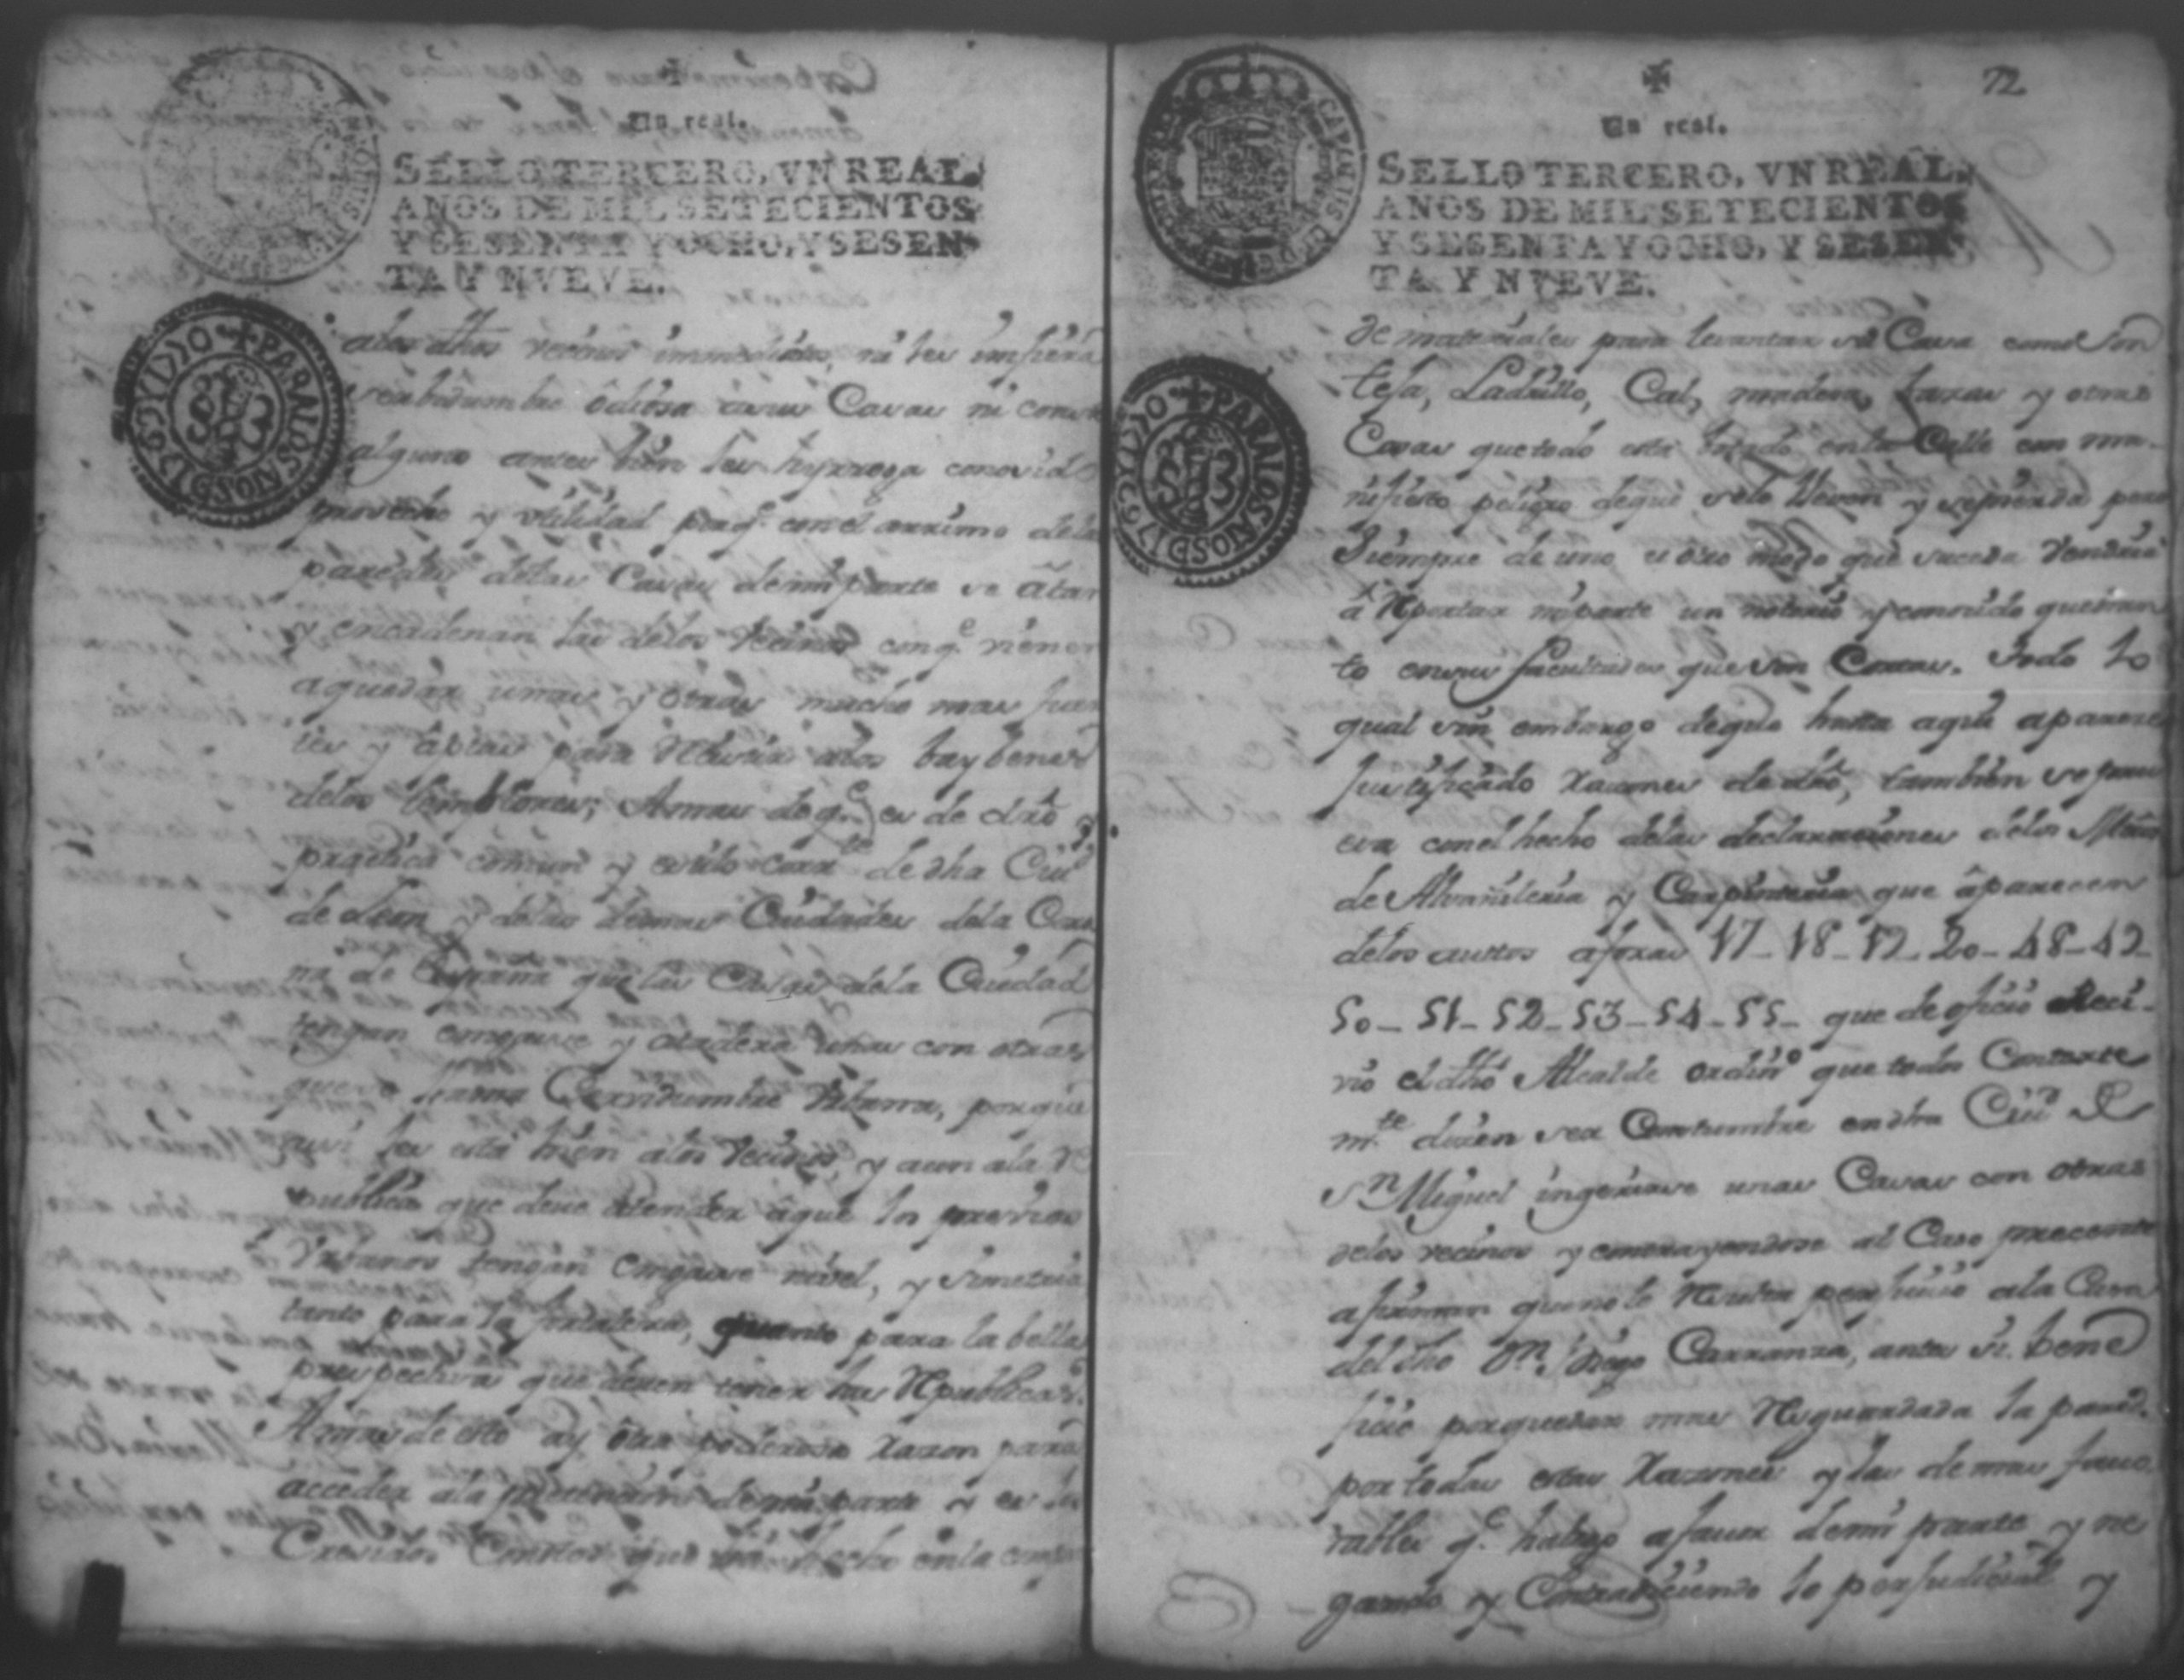 Un real.
SELLO TERCERO, VN REAL,
AÑOS DE MIL SETECIENTOS
Y SESENTA Y OCHO, Y SESEN-
TA Y NVEVE.
PARA LOS AÑOS D
a los dhos vecinos inmediatos, ni les infiera
servidumbre odiosa a sus Casas ni
alguno antes bien les conosido
provecho y utilidad porq.e con el arrimo de la
paredes de las Casas de mi parte se atan
y encadenan las de los vecinos con q.e vienen
a quedar unas y otras mucho mas fuer
tes y aptas para resistir a los baybenes
de los temblores; Amas de q.e es de dro y
practica comun y estilo corr.te de dha Ciu.d
de Leon y de las demas Ciudades de la Coro
na de España que las Casas de la Ciudad
tengan engarse y atadera unas con otras
que se llama Servidumbre Urbana, porque
assi les está bien a los vecinos, y aun a la Re
publica que deve atender a que los predios
Urbanos tengan engarse nivel, y simetria
tanto para la fortaleza, quanto para la bella
prespectiva que deven tener las Republicas.
Amas de esto ay otra poderosa razon para
acceder a la pretencion de mi parte y es los
Cresidos Costos que há hecho en la compra
72
Un real.
SELLO TERCERO, VN REAL,
AÑOS DE MIL SETECIENTOS
Y SESENTA Y OCHO, Y SESEN-
TA Y NVEVE.
CAROLUS
PARA LOS AÑOS D
de materiales para levantar su Casa como son
teja, Ladrillo, Cal, madera, y otras
Cosas que todo está botado en la Calle con ma-
nifiesto peligro de que se lo lleven y se pierda pero
Siempre de uno u otro modo que suceda vendria
a reportar mi parte un notorio y conosido quebran
to en sus facultades que son Cortas. Todo lo
qual sin embargo de que hasta aqui aparece
justificado razones de dro, tambien se
con el hecho de las declaraciones de los Mros
de Alvañileria y Carpinteria que aparecen
de los auttos a foxas 17-18-19-20-48-49
50-51-52-53-54-55- que de oficio Reci-
vio el dho Alcalde ordin.o que todos Conteste
m.te disen ser Costumbre en dha Ciu.d de
S.n Miguel ingerirse unas Casas con otras
de los vecinos y contrayendose al Caso precente
afirman que no le resulta perjuicio a la Casa
del dho D.n Diego Carranza, antes si bene
ficio por quedar mas resguardada la pared.
por todas estas razones y las demas favo
rables q.e hallego a favor de mi parte y ne
gando y Contradiciendo lo perjudicial y